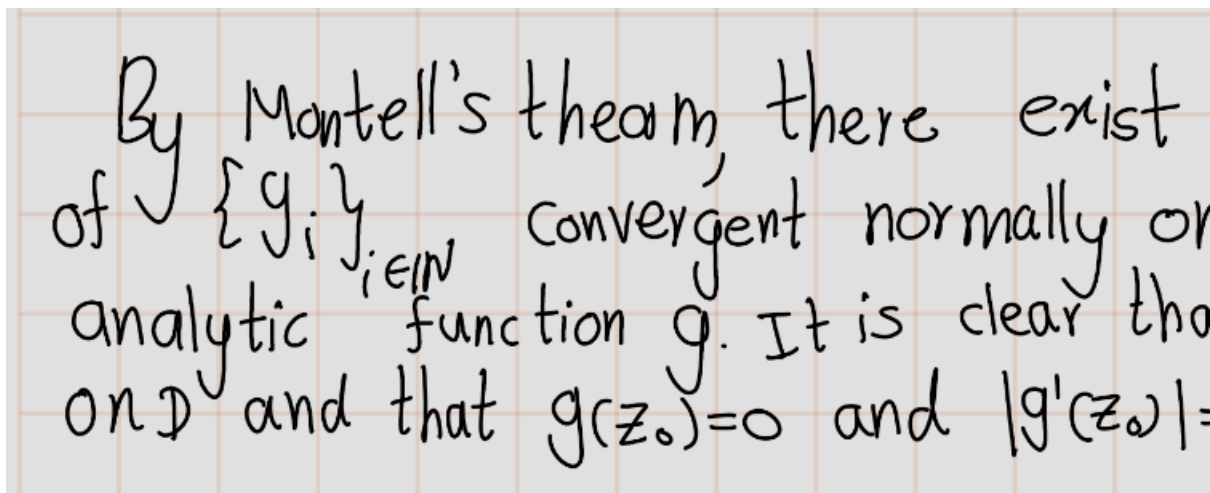 By Montell's theom, there exist
of {g_i}_{i∈ℕ} convergent normally or
analytic function g. It is clear tha
on D and that g(z₀)=0 and |g'(z₀)|=